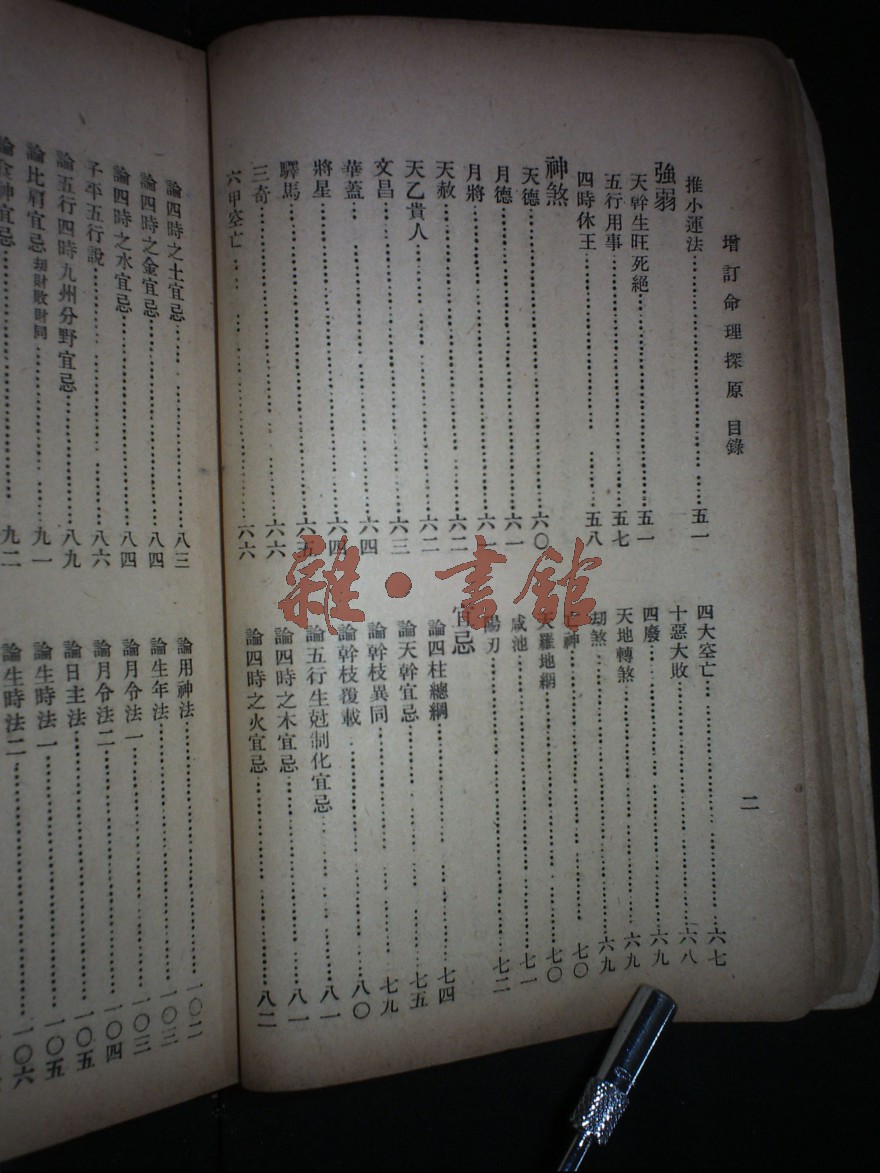 增訂命理探原 目錄
二
推小運法 五一
強弱
天幹生旺死絕 五一
五行用事 五七
四時休王 五八
神煞
天德 六〇
月德 六一
月將 六一
天赦 六二
天乙貴人 六二
文昌 六三
華蓋 六四
將星 六四
驛馬 六五
三奇 六六
六甲空亡 六六
四大空亡 六七
十惡大敗 六八
四廢 六九
天地轉煞 六九
劫煞 六九
亡神 七〇
天羅地網 七〇
咸池 七一
陽刃 七二
宜忌
論四柱總綱 七四
論天幹宜忌 七五
論幹枝異同 七九
論幹枝覆載 八〇
論五行生尅制化宜忌 八一
論四時之木宜忌 八一
論四時之火宜忌 八二
論四時之土宜忌 八三
論四時之金宜忌 八四
論四時之水宜忌 八四
子平五行說 八六
論五行四時九州分野宜忌 八九
論比肩宜忌 劫財敗財同 九一
論食神宜忌 九二
論用神法 一〇二
論生年法 一〇三
論月令法一 一〇三
論月令法二 一〇四
論日主法 一〇五
論生時法一 一〇五
論生時法二 一〇六
雜·書館